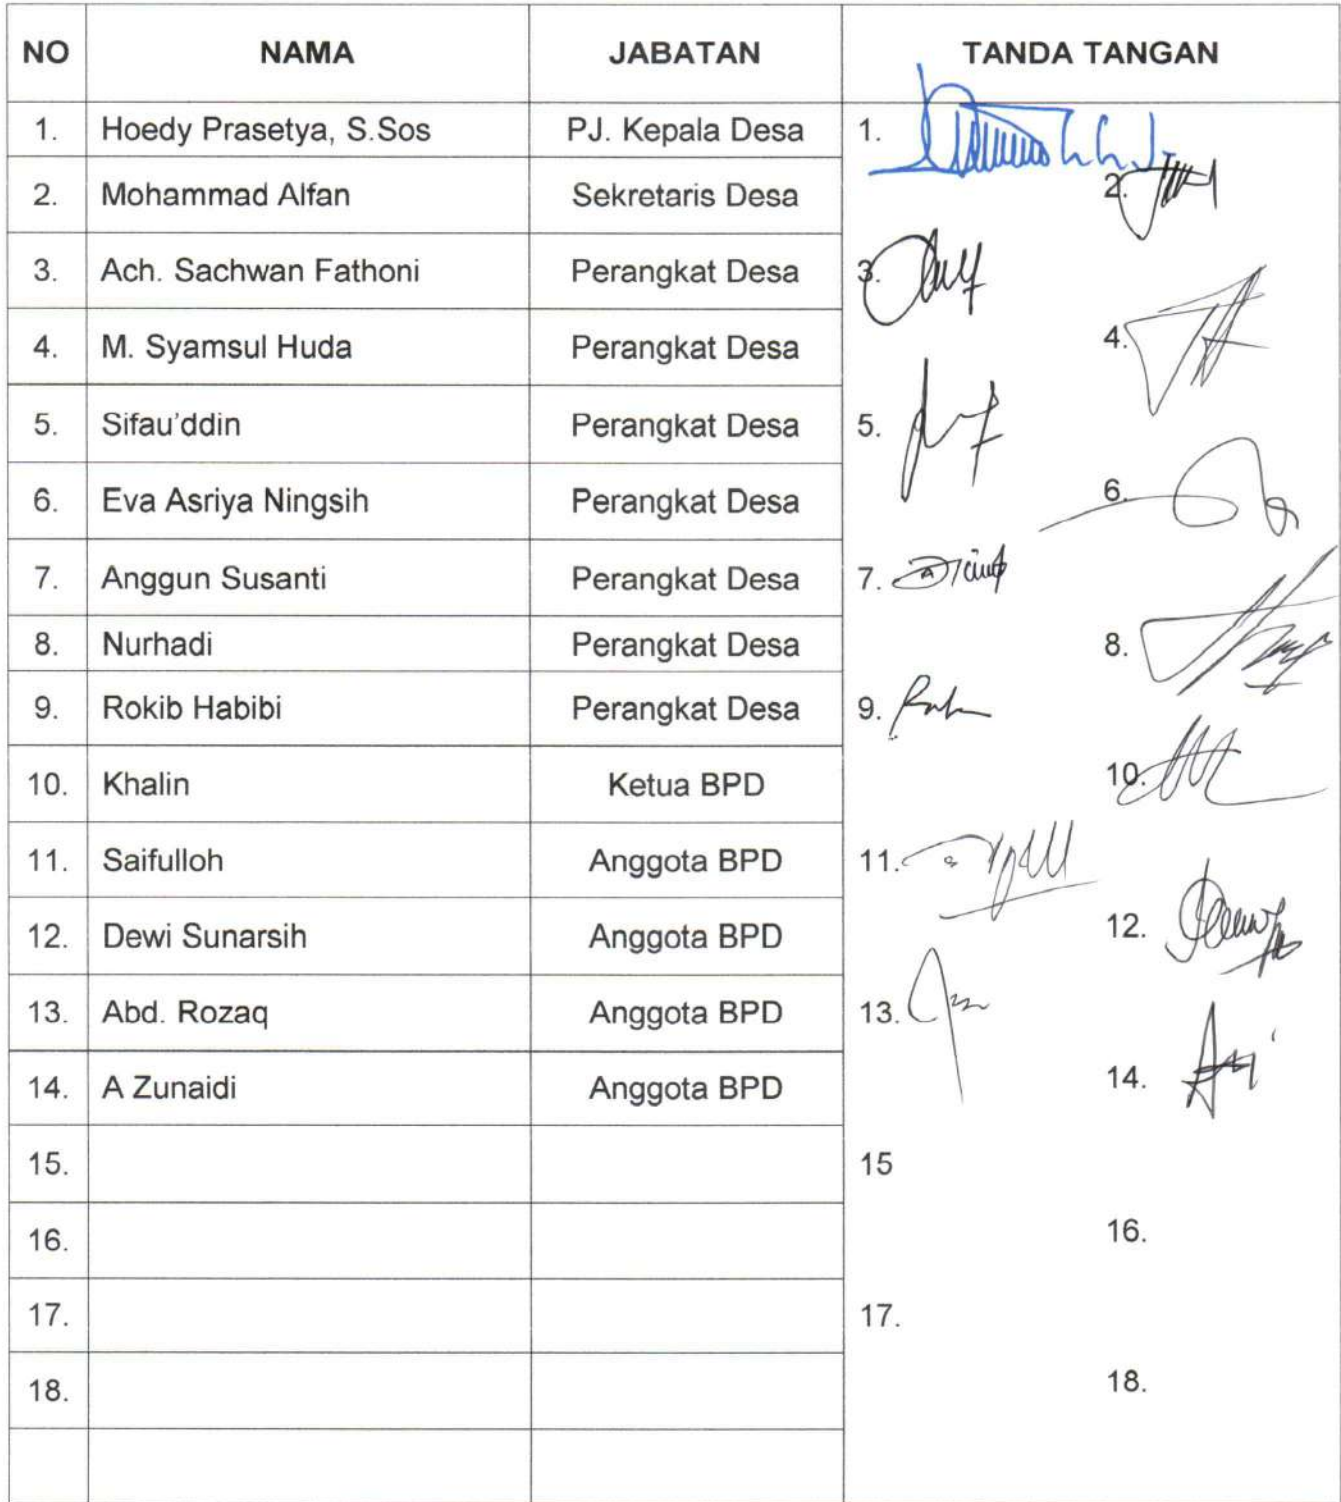 NO NAMA JABATAN TANDA TANGAN
1. Hoedy Prasetya, S.Sos PJ. Kepala Desa 1.
2. Mohammad Alfan Sekretaris Desa 2.
3. Ach. Sachwan Fathoni Perangkat Desa 3.
4. M. Syamsul Huda Perangkat Desa 4.
5. Sifau'ddin Perangkat Desa 5.
6. Eva Asriya Ningsih Perangkat Desa 6.
7. Anggun Susanti Perangkat Desa 7.
8. Nurhadi Perangkat Desa 8.
9. Rokib Habibi Perangkat Desa 9.
10. Khalin Ketua BPD 10.
11. Saifulloh Anggota BPD 11.
12. Dewi Sunarsih Anggota BPD 12.
13. Abd. Rozaq Anggota BPD 13.
14. A Zunaidi Anggota BPD 14.
15. 15
16. 16.
17. 17.
18. 18.